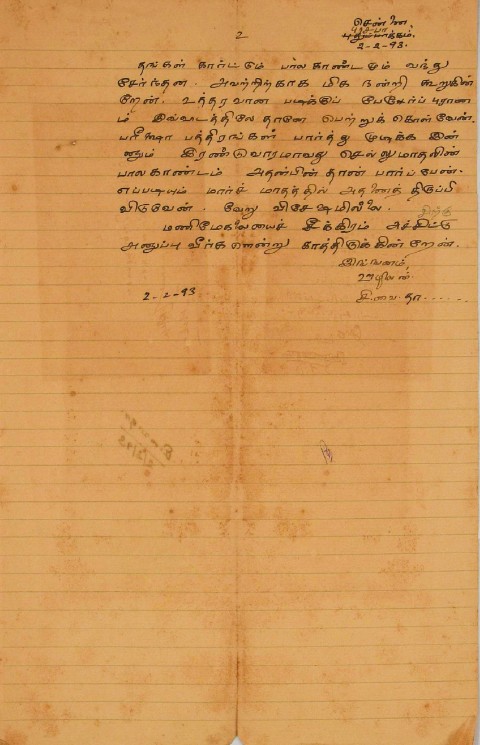 2
சென்னை
புதுப்பாக்கம்.
2-2-93.
தங்கள் கார்ட்டும் பால காண்டமும் வந்து
சேர்ந்தன. அவற்றிற்காக மிக நன்றி கூறுகின்
றேன். உத்தரவான படிக்குப் பேரூர்ப் புராண
ம் இவ்விடத்திலே தானே பெற்றுக் கொள்வேன்.
பரீக்ஷா பத்திரங்கள் பார்த்து முடிக்க இன்
னும் இரண்டுவாரமாவது செல்லுமாதலின்
பாலகாண்டம் அதன்பின் தான் பார்ப்பேன்.
எப்படியும் மார்ச் மாதத்தில் அதனைத் திருப்பி
விடுவேன். வேறு விசேஷமில்லை.
மணிமேகலையைச் சீக்கிரம் அச்சிட்டு
அனுப்புவீர்களென்று காத்திருக்கின்றேன்.
இங்ஙனம்,
சி. வை. தா......
2-2-93.